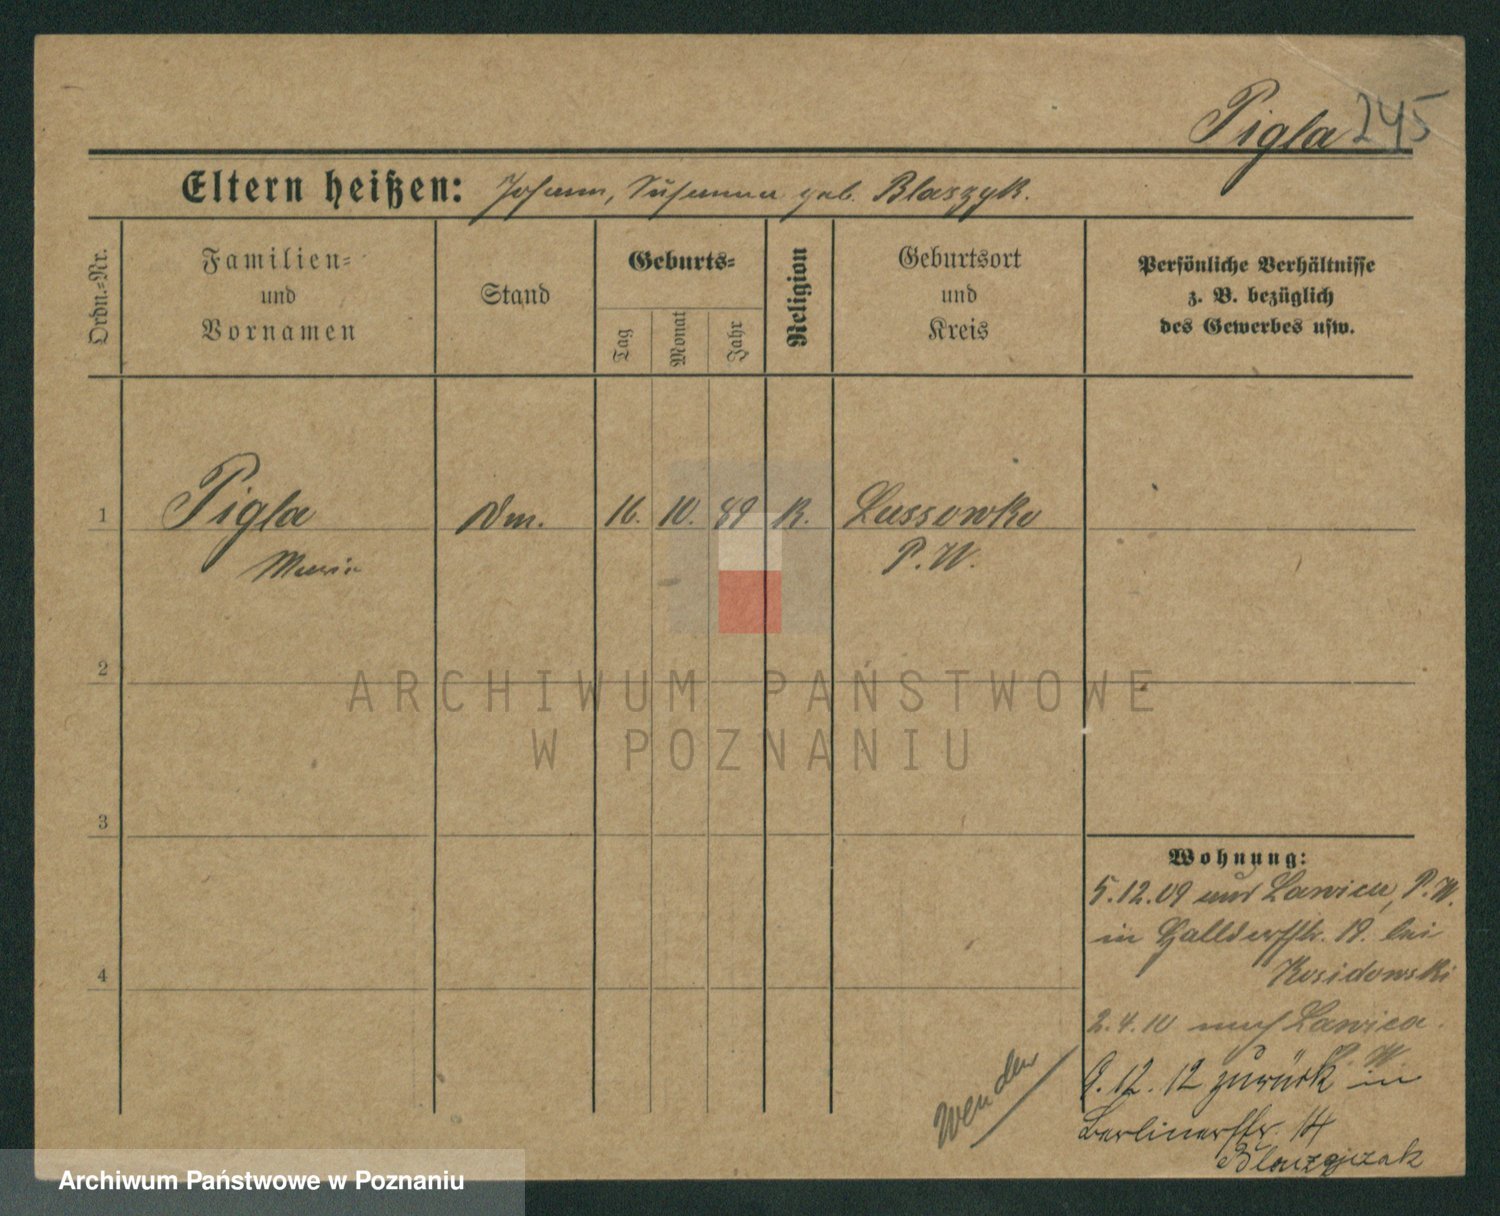 Pigla 245
Eltern heißen: Johann, Susanna geb. Blaszyk.
Ordn.-Nr.
Familien-
und
Vornamen
Stand
Geburts-
Tag
Monat
Jahr
Religion
Geburtsort
und
Kreis
Persönliche Verhältnisse
z. B. bezüglich
des Gewerbes usw.
1 Pigla Dm. 16. 10. 89 K. Lussowko
Maria P. W.
2
ARCHIWUM PAŃSTWOWE
W POZNANIU
3
Wohnung:
5.12.09 aus Lawica, P. W.
in 19. bei
Kosidowski
4
2.4.10 nach Lawica.
P. W.
9.12.12 zurück in
Berlinerstr. 14
Blaszczak
Wenden
Archiwum Państwowe w Poznaniu